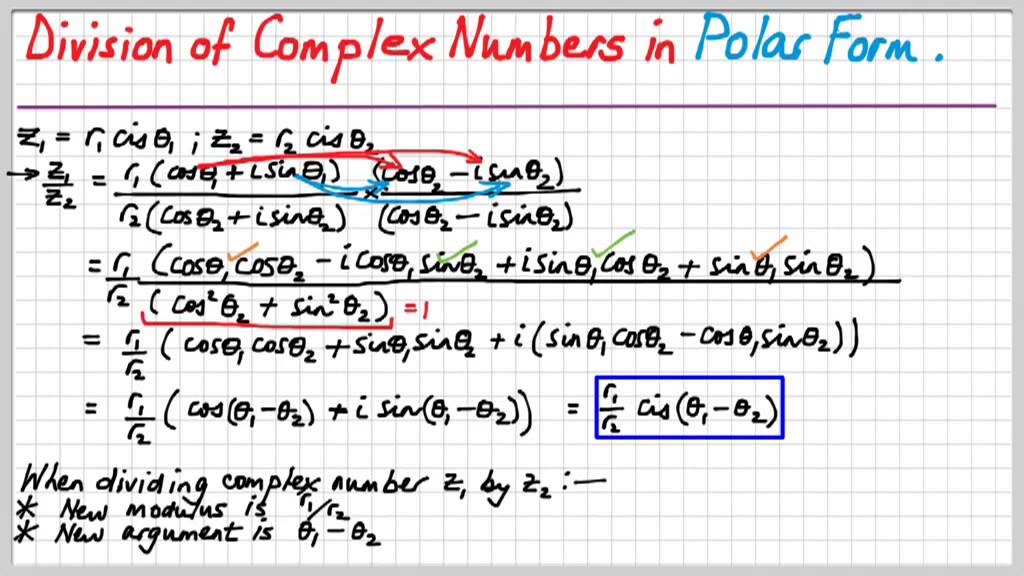 Division of Complex Numbers in Polar Form.
z₁ = r₁ cis θ₁ ; z₂ = r₂ cis θ₂
→ z₁/z₂ = r₁(cosθ₁ + i sinθ₁)/r₂(cosθ₂ + i sinθ₂) × (cosθ₂ − i sinθ₂)/(cosθ₂ − i sinθ₂)
= r₁/r₂ (cosθ₁cosθ₂ − i cosθ₁sinθ₂ + i sinθ₁cosθ₂ + sinθ₁sinθ₂)/(cos²θ₂ + sin²θ₂) = 1
= r₁/r₂ (cosθ₁cosθ₂ + sinθ₁sinθ₂ + i(sinθ₁cosθ₂ − cosθ₁sinθ₂))
= r₁/r₂ (cos(θ₁−θ₂) + i sin(θ₁−θ₂)) = r₁/r₂ cis(θ₁−θ₂)
When dividing complex number z₁ by z₂ :—
* New modulus is r₁/r₂
* New argument is θ₁ − θ₂